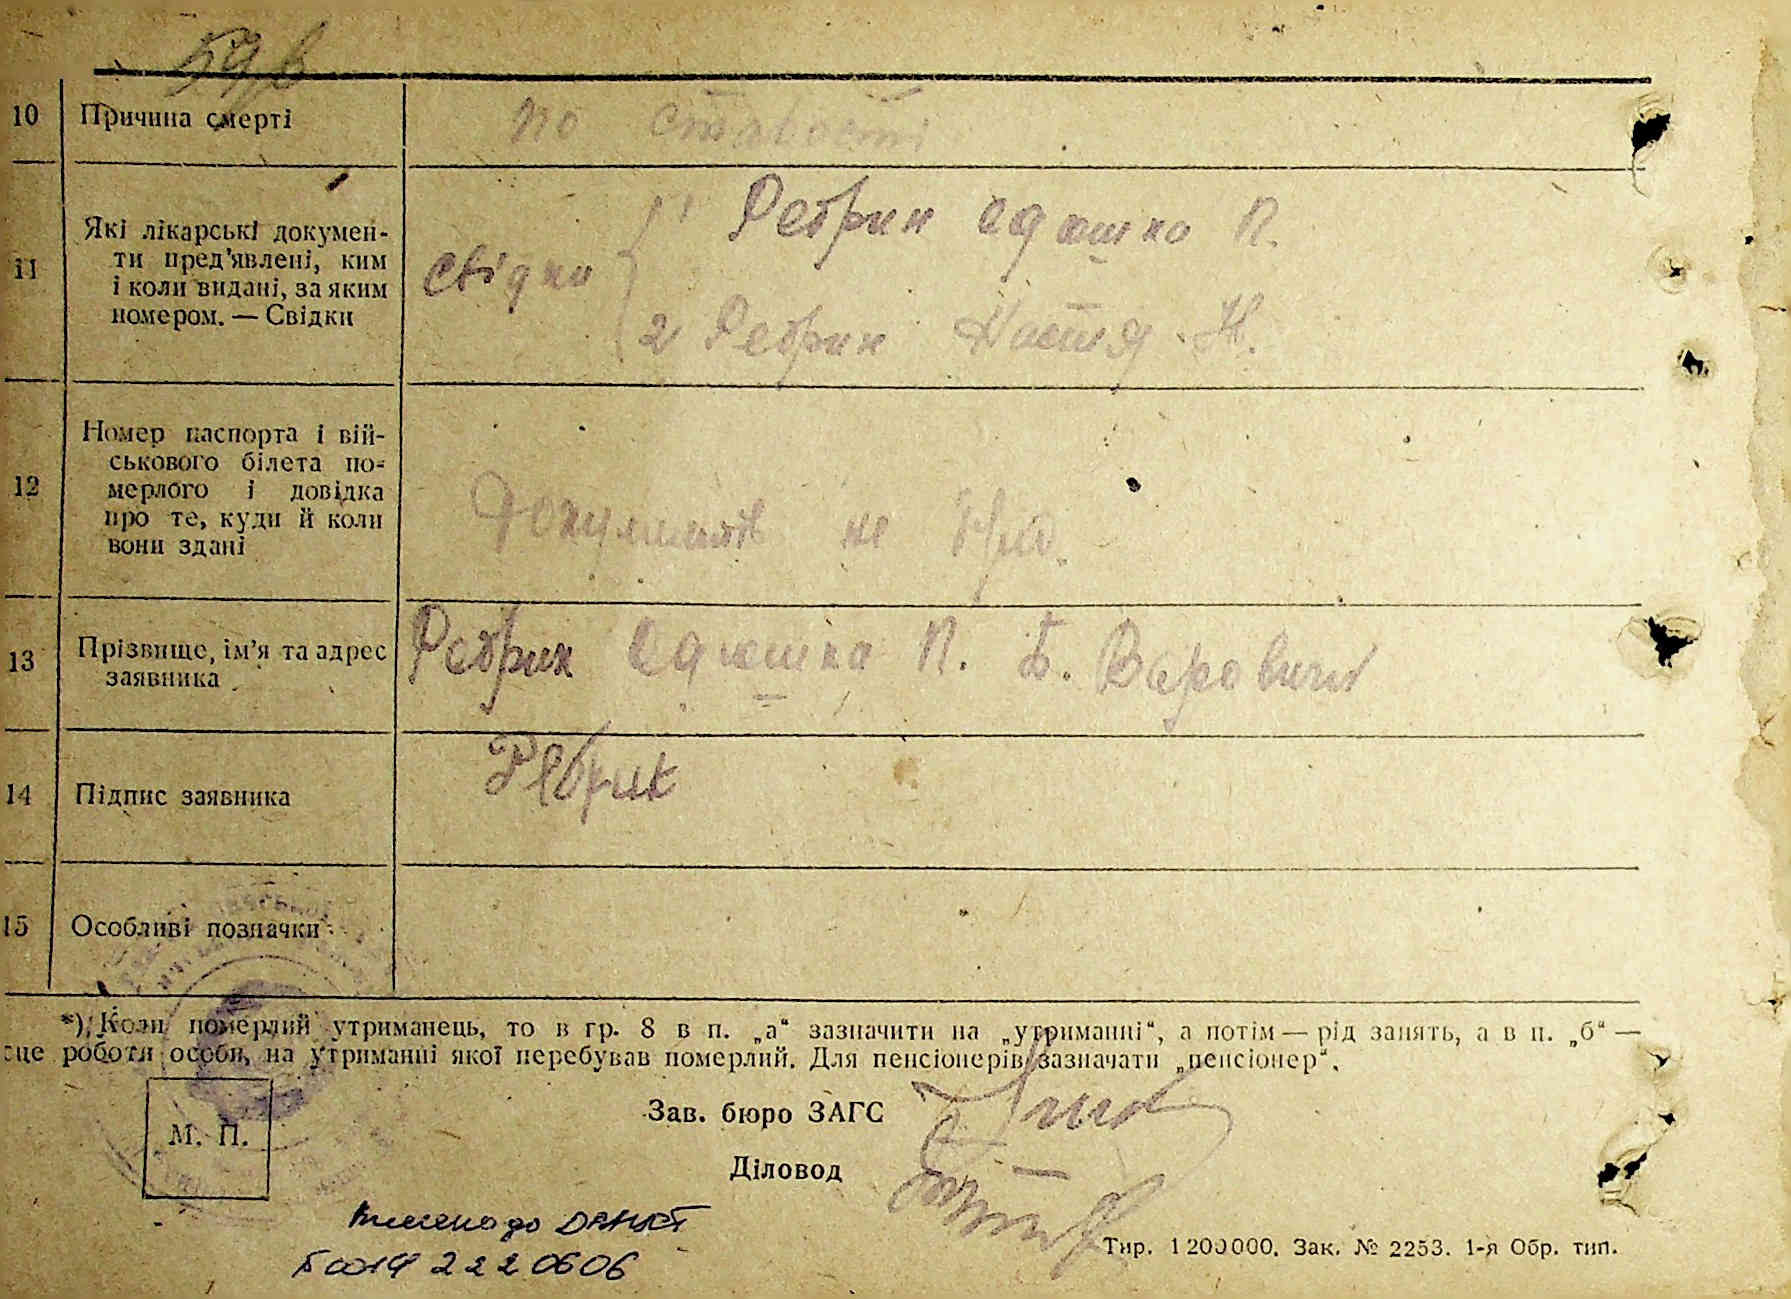 59 в
10 Причина смерті по старості
11 Які лікарські докумен-
ти пред'явлені, ким
і коли видані, за яким
номером. — Свідки
Свідки { 1 Ребрик П.
2 Ребрик Настя Н.
12 Номер паспорта і вій-
ськового білета по-
мерлого і довідка
про те, куди й коли
вони здані
Документів не
13 Прізвище, ім'я та адрес
заявника
Ребрик П. Б. Варовичі
14 Підпис заявника Ребрик
15 Особливі позначки
*) Коли померлий утриманець, то в гр. 8 в п. „а“ зазначити на „утриманні“, а потім — рід занять, а в п. „б“ —
сце роботи особи, на утриманні якої перебував померлий. Для пенсіонерів зазначати „пенсіонер“.
Зав. бюро ЗАГС
М. П.
Діловод
до ДРАЦСГ
222 0606
Тир. 1200000. Зак. № 2253. 1-я Обр. тип.